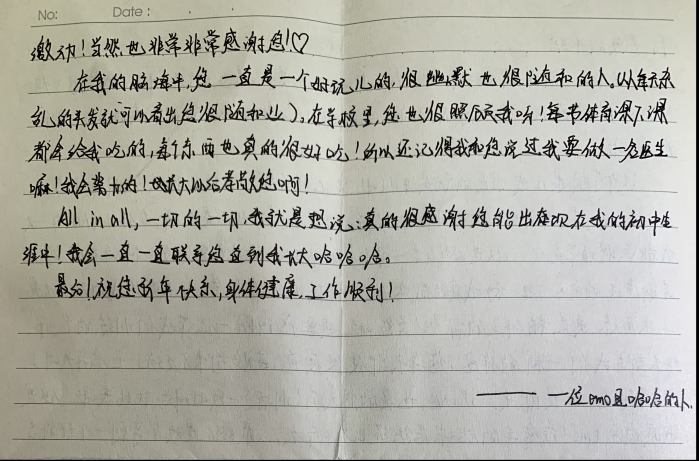 No: Date:
激动!当然也非常非常感谢您!♡
在我的脑海中,您一直是一个好玩儿的,很幽默也很随和的人。(从每天杂
乱的头发就可以看出您很随和也)。在学校里,您也很照顾我哟!每节体育课下课
都会给我吃的,每个东西也真的很好吃!所以还记得我和您说过我要做一名医生
嘛!我会努力的!长大以后孝敬您啊!
All in all,一切的一切,我就是想说:真的很感谢您能出在现在我的初中生
涯中!我会一直一直联系您直到我长大哈哈哈。
最后!祝您新年快乐,身体健康,工作顺利!
—— 一位emo且哈哈的人.